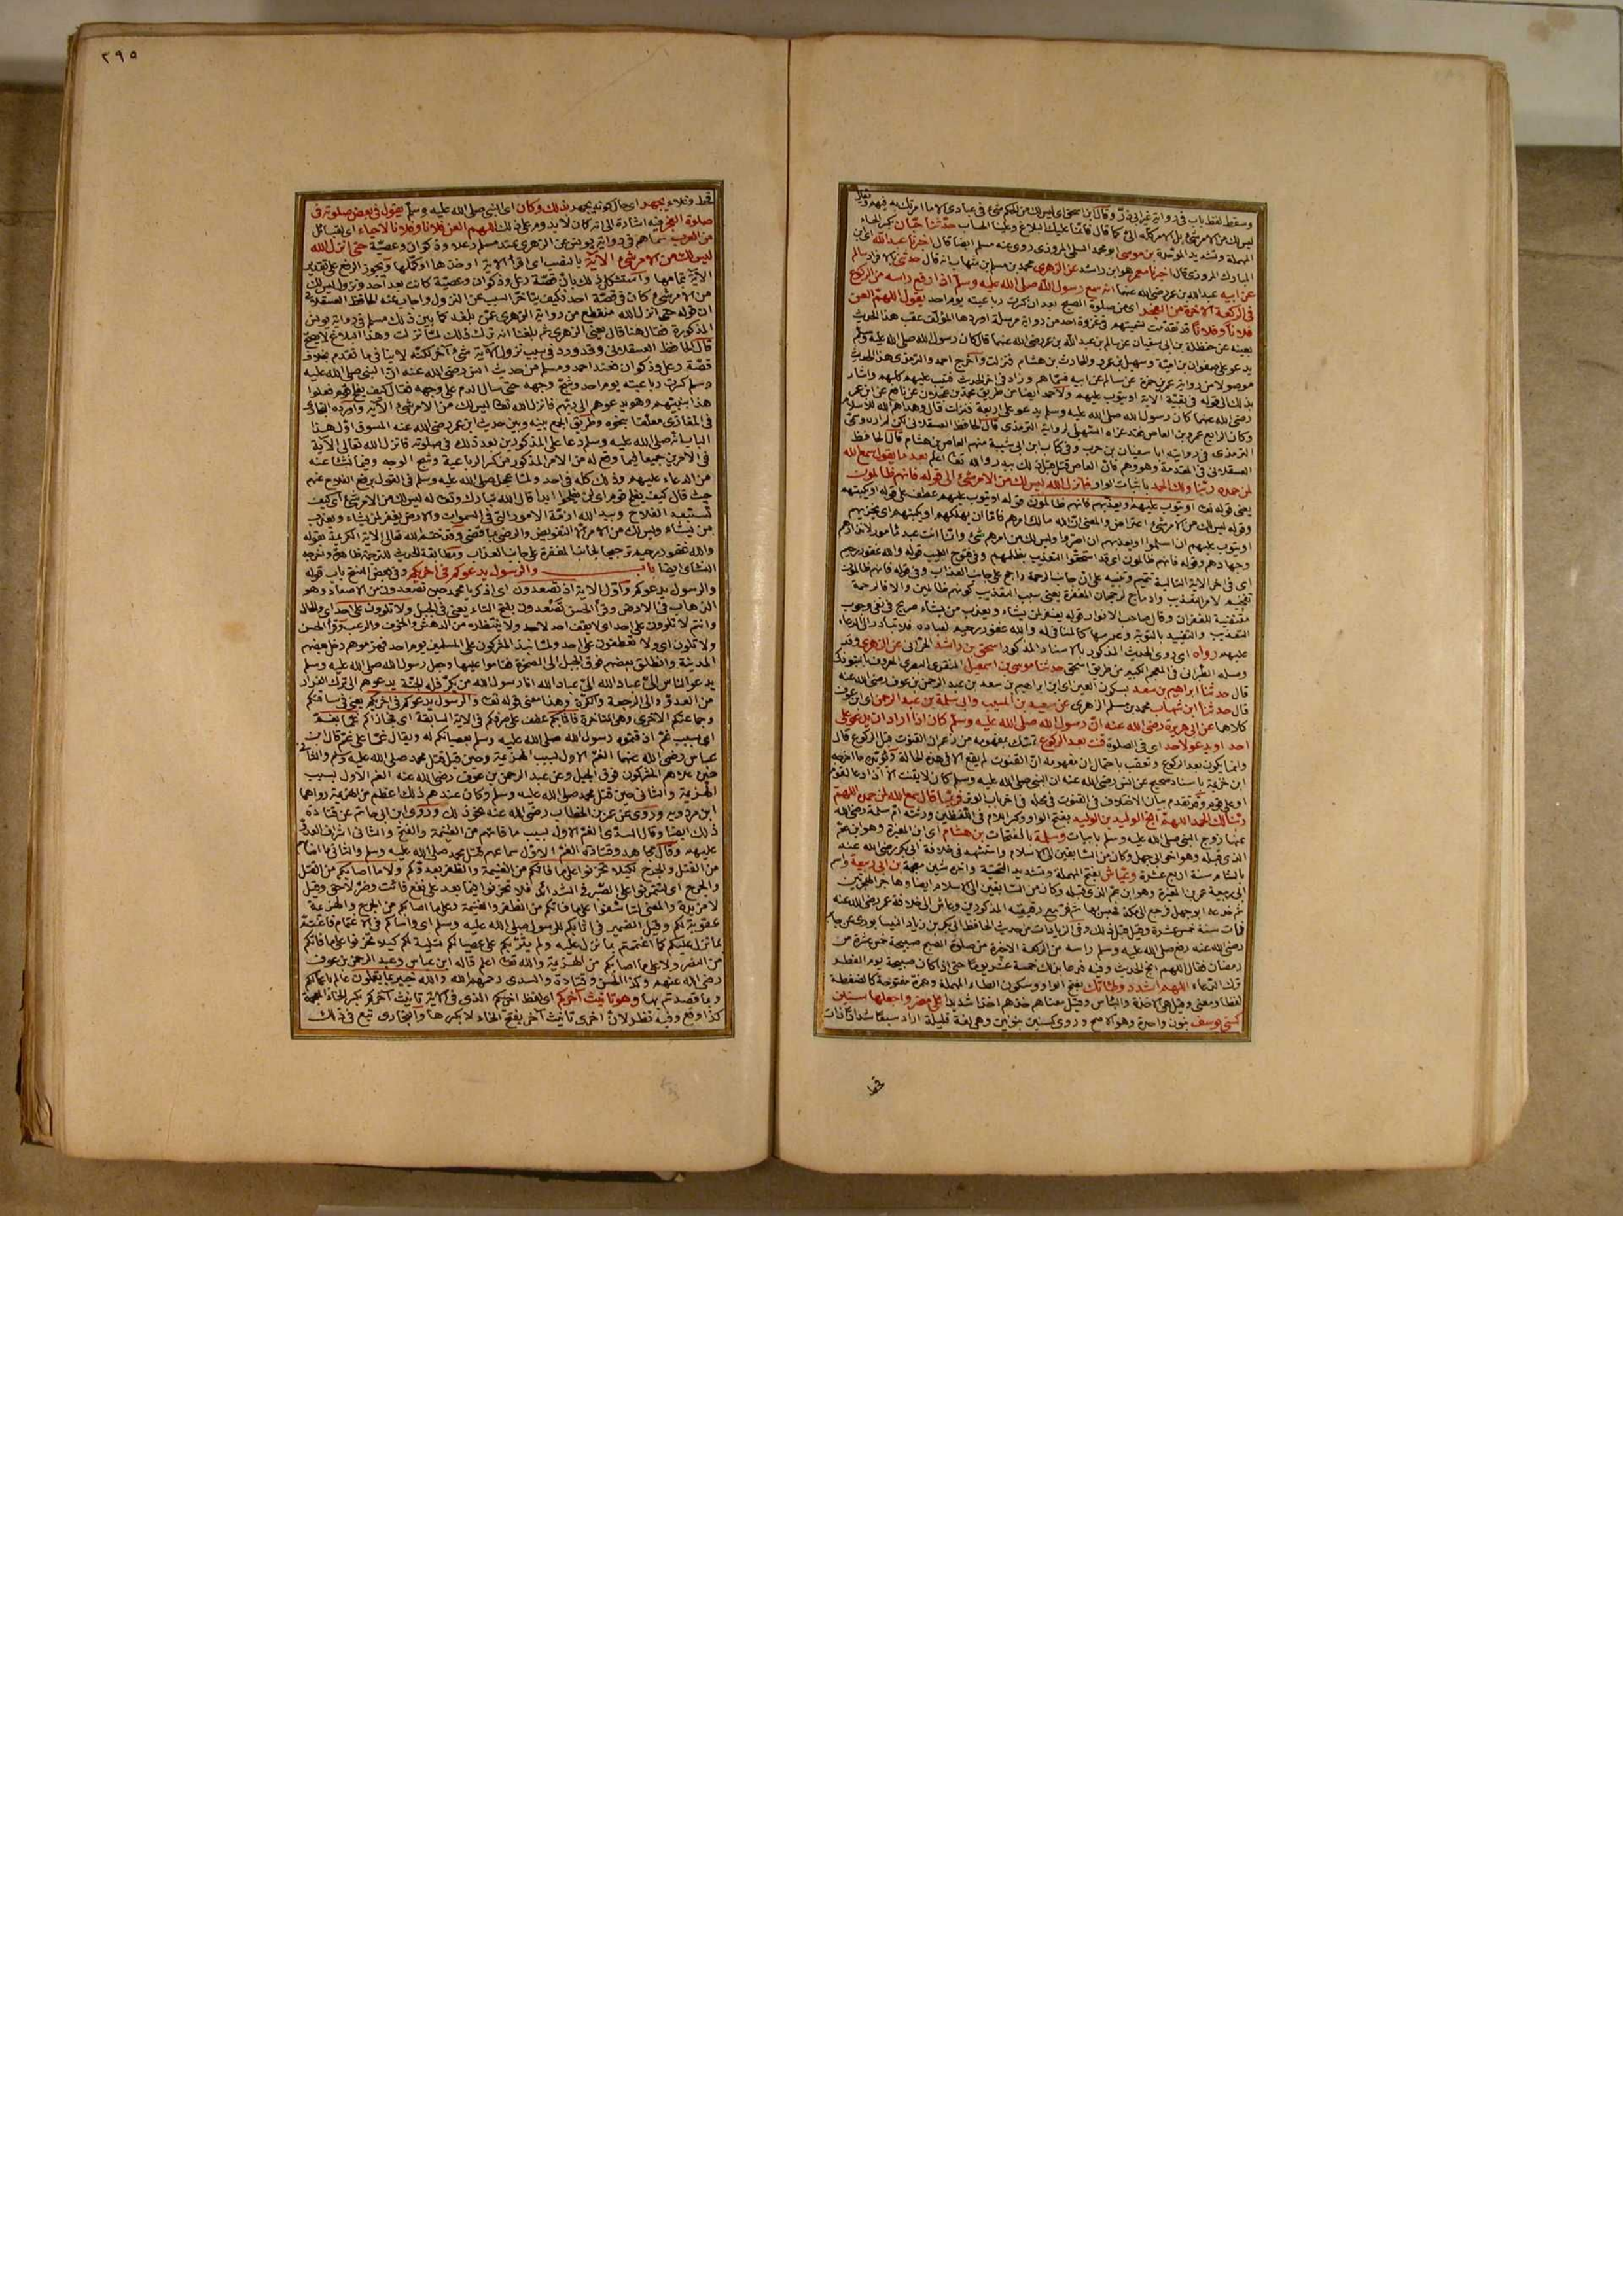 وسقط لفظ باب في رواية غير ابي ذر وقال ابن اسحق اي ليس لك من الحكم شئ في عبادي الا ما امرتك به فيهم
ليس لك من الامر شئ بل الامر كله الى كما قال فانما عليك البلاغ وعلينا الحساب حدثنا حبان بكسر الحاء
المهملة وتشديد الموحدة بن موسى ابو محمد السلمى المروزى روى عنه مسلم ايضا قال اخبرنا عبد الله اى ابن
المبارك المروزى قال اخبرنا معمر هو ابن راشد عن الزهرى محمد بن مسلم ابن شهاب انه قال حدثنى بالافراد سالم
عن ابيه عبد الله بن عمر رضى الله عنهما انه سمع رسول الله صلى الله عليه وسلم اذا رفع راسه من الركوع
فى الركعة الآخرة من الفجر اى من صلوة الصبح بعد ان كسرت رباعيته يوم احد يقول اللهم العن
فلانا وفلانا قد تقدمت تسميتهم فى غزوة احد من رواية مرسلة اوردها المؤلف عقب هذا الحديث
بعينه عن حنظلة بن ابى سفيان عن سالم بن عبد الله بن عمر رضى الله عنهما قال كان رسول الله صلى الله عليه وسلم
يدعو على صفوان بن امية وسهيل بن عمرو والحارث بن هشام فنزلت واخرج احمد والترمذى هذا الحديث
موصولا من رواية عمر بن حمزة عن سالم عن ابيه فسماهم وزاد فى اخر الحديث فتيب عليهم كلهم واشار
بذلك الى قوله فى بقية الآية او يتوب عليهم ولاحمد ايضا من طريق محمد بن عجلان عن نافع عن ابن عمر
رضى الله عنهما كان رسول الله صلى الله عليه وسلم يدعو على اربعة فنزلت قال وهداهم الله للاسلام
وكان الرابع عمرو بن العاص فقد عزاه السهيلى لرواية الترمذى قال الحافظ العسقلانى لكن لم اره وفى
الترمذى فى رواية ابا سفيان بن حرب وفى كتاب ابن ابى شيبة منهم العاص بن هشام قال الحافظ
العسقلانى فى المقدمة وهو وهم فان العاص قتل قبل ذلك ببدر والله تعالى اعلم بعد ما يقول سمع الله
لمن حمده ربنا ولك الحمد باثبات الواو فانزل الله ليس لك من الامر شئ الى قوله فانهم ظالمون
يعنى قوله تعالى او يتوب عليهم او يعذبهم فانهم ظالمون قوله او يتوب عليهم عطف على قوله او يكبتهم
وقوله ليس لك من الامر شئ اعتراض والمعنى ان الله مالك امرهم فاما ان يهلكهم او يكبتهم اى يخزيهم
او يتوب عليهم ان اسلموا او يعذبهم ان اصروا وليس لك من امرهم شئ وانما انت عبد مامور لانذارهم
وجهادهم وقوله فانهم ظالمون اى قد استحقوا التعذيب بظلمهم وفى فتوح الغيب قوله والله غفور رحيم
اى فى اخر الآية التالية تتميم وتنبيه على ان جانب الرحمة راجح على جانب العذاب وفى قوله فانهم ظالمون
تتميم لامر التعذيب وادماج لرجحان المغفرة يعنى سبب التعذيب كونهم ظالمين والا فالرحمة
مقتضية للغفران وقال صاحب الانوار قوله يغفر لمن يشاء ويعذب من يشاء صريح فى نفى وجوب
التعذيب والتقييد بالتوبة وعدمها كالمنافى له والله غفور رحيم لعباده فلا تبادر الى الدعاء
عليهم رواه اى روى الحديث المذكور بالاسناد المذكور اسحق بن راشد الحرانى عن الزهرى وقد
وصله الطبرانى فى المعجم الكبير من طريق اسحق حدثنا موسى بن اسمعيل المنقرى البصرى المعروف بالتبوذكى
قال حدثنا ابراهيم بن سعد بسكون العين اى ابن ابراهيم بن سعد بن عبد الرحمن بن عوف رضى الله عنه
قال حدثنا ابن شهاب محمد بن مسلم الزهرى عن سعيد بن المسيب وابى سلمة بن عبد الرحمن اى ابن عوف
كلاهما عن ابى هريرة رضى الله عنه ان رسول الله صلى الله عليه وسلم كان اذا اراد ان يدعو على
احد او يدعو لاحد اى فى الصلوة قنت بعد الركوع تمسك بمفهومه من زعم ان القنوت قبل الركوع قال
وانما يكون بعد الركوع وتعقب باحتمال ان مفهومه ان القنوت لم يقع الا فى هذه الحالة ويؤيده ما اخرجه
ابن خزيمة باسناد صحيح عن انس رضى الله عنه ان النبى صلى الله عليه وسلم كان لا يقنت الا اذا دعا لقوم
او على قوم وقد تقدم بيان الاختلاف فى القنوت فى محله فى اخر باب الوتر فربما قال سمع الله لمن حمده اللهم
ربنا لك الحمد اللهم انج الوليد بن الوليد بفتح الواو وكسر اللام فى اللفظين
عنها زوج النبى صلى الله عليه وسلم وسلمة بالفتحات بن هشام اى ابن المغيرة وهو ابن عم
الذى قبله وهو اخو ابى جهل وكان من السابقين الى الاسلام واستشهد فى خلافة ابى بكر رضى الله عنه
بالشام سنة اربع عشرة وعياش بفتح المهملة وتشديد التحتية واخره شين معجمة بن ابى ربيعة واسم
ابى ربيعة عمرو بن المغيرة وهو ابن عم الذى قبله وكان من السابقين الى الاسلام ايضا وهاجر الهجرتين
ثم خدعه ابو جهل فرجع الى مكة فحبس بها ثم فر مع رفيقيه المذكورين وعاش الى خلافة عمر رضى الله عنه
فمات سنة خمس عشرة وقيل قبل ذلك وفى الزيادات من حديث الحافظ ابى بكر بن زياد النيسابورى عن جابر
رضى الله عنه رفع صلى الله عليه وسلم راسه من الركعة الاخيرة من صلوة الصبح صبيحة خمس عشرة من
رمضان فقال اللهم انج الحديث وفيه فدعا بذلك خمسة عشر يوما حتى اذا كان صبيحة يوم الفطر
ترك الدعاء اللهم اشدد وطأتك بفتح الواو وسكون الطاء المهملة وهمزة مفتوحة كالضغطة
لفظا ومعنى وقيل هى الاخذة والبأس وقيل معناهم خذهم اخذا شديدا على مضر واجعلها سنين
كسنى يوسف بنون واحدة وهو الاصح وروى كسنين بنونين وهى لغة قليلة اراد سبعا شدادا ذات
قحط
٣٩٥
قحط وغلاء يجهر اى حال كونه يجهر بذلك وكان اى النبى صلى الله عليه وسلم يقول فى بعض صلوته فى
صلوة الفجر فيه اشارة الى انه كان لا يدوم على ذلك اللهم العن فلانا وفلانا لاحياء اى لقبائل
من العرب سماهم فى رواية يونس عن الزهرى عند مسلم رعلا وذكوان وعصية حتى انزل الله
ليس لك من الامر شئ الآية بالنصب اى اقرأ الآية او خذها او كملها ويجوز الرفع على تقدير
الآية بتمامها واستشكل ذلك بان قصة رعل وذكوان وعصية كانت بعد احد ونزول ليس لك
من الامر شئ كان فى قصة احد فكيف يتاخر السبب عن النزول واجاب عنه الحافظ العسقلانى
ان قوله حتى انزل الله منقطع من رواية الزهرى عمن بلغه كما بين ذلك مسلم فى رواية يونس
المذكورة فقال هنا قال يعنى الزهرى ثم بلغنا انه ترك ذلك لما نزلت وهذا البلاغ لا يصح
قال الحافظ العسقلانى وقد ورد فى سبب نزول الآية شئ آخر لكنه لا ينافى ما تقدم بخلاف
قصة رعل وذكوان فعند احمد ومسلم من حديث انس رضى الله عنه ان النبى صلى الله عليه
وسلم كسرت رباعيته يوم احد وشج وجهه حتى سال الدم على وجهه فقال كيف يفلح قوم فعلوا
هذا بنبيهم وهو يدعوهم الى ربهم فانزل الله تعالى ليس لك من الامر شئ الآية واورده البخارى
فى المغازى معلقا بنحوه وطريق الجمع بينه وبين حديث ابن عمر رضى الله عنه المسوق اول هذا
الباب انه صلى الله عليه وسلم دعا على المذكورين بعد ذلك فى صلوته فانزل الله تعالى الآية
فى الامرين جميعا فيما وقع له من الامر المذكور من كسر الرباعية وشج الوجه وفيما نشا عنه
من الدعاء عليهم وذلك كله فى احد ولما عجل صلى الله عليه وسلم فى القول برفع الفلاح عنهم
حيث قال كيف يفلح قوم اى لن يفلحوا ابدا قال الله تبارك وتعالى له ليس لك من الامر شئ اى كيف
تستبعد الفلاح وبيد الله ازمة الامور التى فى السموات والارض يغفر لمن يشاء ويعذب
من يشاء وليس لك من الامر الا التفويض والرضى بما قضى وقد ختم الله تعالى الآية الكريمة بقوله
والله غفور رحيم ترجيحا لجانب المغفرة على جانب العذاب ومطابقة الحديث للترجمة ظاهرة واخرجه
النسائى ايضا باب والرسول يدعوكم فى اخريكم وفى بعض النسخ باب قوله
والرسول يدعوكم واول الآية اذ تصعدون اى اذكر يا محمد حين تصعدون من الاصعاد وهو
الذهاب فى الارض وقرأ الحسن تصعدون بفتح التاء يعنى فى الجبل ولا تلوون على احد اى والحال
وانتم لا تلوون على احد اى لا يقف احد لاحد ولا ينتظره من الدهش والخوف والرعب وقرأ الحسن
ولا تلون اى ولا تعطفون على احد ولما نبذ المشركون على المسلمين يوم احد فهزموهم دخل بعضهم
المدينة وانطلق بعضهم فوق الجبل الى الصخرة فقاموا عليها وجعل رسول الله صلى الله عليه وسلم
يدعو الناس الى عباد الله الى عباد الله انا رسول الله من يكر فله الجنة يدعوهم الى ترك الفرار
من العدو والى الرجعة والكرة وهذا معنى قوله تعالى والرسول يدعوكم فى اخريكم يعنى فى ساقتكم
وجماعتكم الاخرى وهى المتاخرة فاثابكم عطف على صرفكم فى الآية السابقة اى فجازاكم غما بغم
اى بسبب غم اذقتموه رسول الله صلى الله عليه وسلم بعصيانكم له ويقال غما على غم قال ابن
عباس رضى الله عنهما الغم الاول بسبب الهزيمة وحين قيل قتل محمد صلى الله عليه وسلم والثانى
حين علاهم المشركون فوق الجبل وعن عبد الرحمن بن عوف رضى الله عنه الغم الاول بسبب
الهزيمة والثانى حين قيل قتل محمد صلى الله عليه وسلم وكان عندهم ذلك اعظم من الهزيمة رواهما
ابن مردويه وروى عن عمر بن الخطاب رضى الله عنه نحو ذلك وروى ابن ابى حاتم عن قتادة
ذلك ايضا وقال السدى الغم الاول بسبب ما فاتهم من الغنيمة والفتح والثانى اشراف العدو
عليهم وقال مجاهد وقتادة الغم الاول سماعهم قتل محمد صلى الله عليه وسلم والثانى ما اصابهم
من القتل والجرح لكيلا تحزنوا على ما فاتكم من الغنيمة والظفر بعدوكم ولا ما اصابكم من القتل
والجرح اى لتتمرنوا على الصبر فى الشدائد فلا تحزنوا فيما بعد على نفع فائت وضر لاحق وقيل
لا مزيدة والمعنى لتأسفوا على ما فاتكم من الظفر والغنيمة وعلى ما اصابكم من الجرح والهزيمة
عقوبة لكم وقيل الضمير فى اثابكم للرسول صلى الله عليه وسلم اى واساكم فى الاغتمام فاغتم
بما نزل عليكم كما اغتممتم بما نزل عليه ولم يثربكم على عصيانكم تسلية لكم كيلا تحزنوا على ما فاتكم
من النصر ولا على ما اصابكم من الهزيمة والله تعالى اعلم قاله ابن عباس وعبد الرحمن بن عوف
رضى الله عنهم وكذا الحسن وقتادة والسدى رحمهم الله والله خبير بما تعملون عالم باعمالكم
وبما قصدتم بها وهو تانيث آخركم اى لفظ اخريكم الذى فى الآية تانيث آخركم بكسر الخاء المعجمة
كذا وقع وفيه نظر لان اخرى تانيث آخر بفتح الخاء لا بكسرها والبخارى تبع فى ذلك